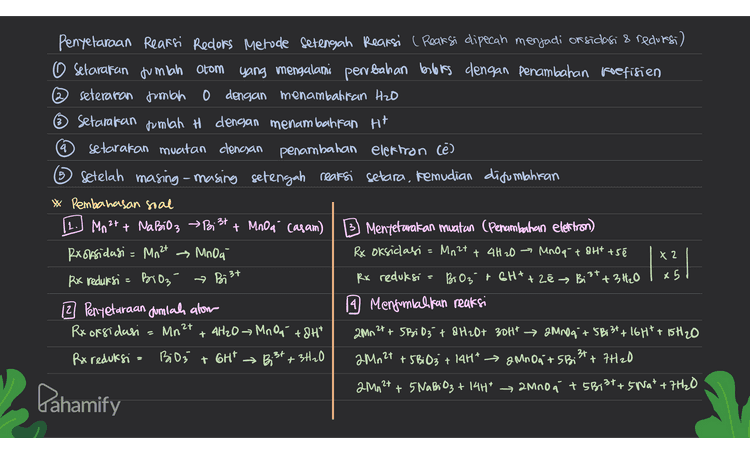 Penyetaraan Reaksi Redoks Metode Setengah Reaksi (Reaksi dipecah menjadi oksidasi & reduksi)
① Setarakan jumlah atom yang mengalami perubahan biloks dengan penambahan koefisien
② seterakan jumlah O dengan menambahkan H₂O
③ Setarakan jumlah H dengan menambahkan H⁺
④ setarakan muatan dengan penambahan elektron (ē)
⑤ Setelah masing-masing setengah reaksi setara, kemudian dijumlahkan
※ Pembahasan soal
1. Mn²⁺ + NaBiO₃ → Bi³⁺ + MnO₄⁻ (asam)
Rx oksidasi = Mn²⁺ → MnO₄⁻
Rx reduksi = BiO₃⁻ → Bi³⁺
2 Penyetaraan jumlah atom
Rx oksidasi = Mn²⁺ + 4H₂O → MnO₄⁻ + 8H⁺
Rx reduksi = BiO₃⁻ + 6H⁺ → Bi³⁺ + 3H₂O
3 Menyetarakan muatan (Penambahan elektron)
Rx oksidasi = Mn²⁺ + 4H₂O → MnO₄⁻ + 8H⁺ + 5ē | x 2
Rx reduksi = BiO₃⁻ + 6H⁺ + 2ē → Bi³⁺ + 3H₂O | x 5
4 Menjumlahkan reaksi
2Mn²⁺ + 5BiO₃⁻ + 8H₂O + 30H⁺ → 2MnO₄⁻ + 5Bi³⁺ + 16H⁺ + 15H₂O
2Mn²⁺ + 5BiO₃⁻ + 14H⁺ → 2MnO₄⁻ + 5Bi³⁺ + 7H₂O
2Mn²⁺ + 5NaBiO₃ + 14H⁺ → 2MnO₄⁻ + 5Bi³⁺ + 5Na⁺ + 7H₂O
Pahamify